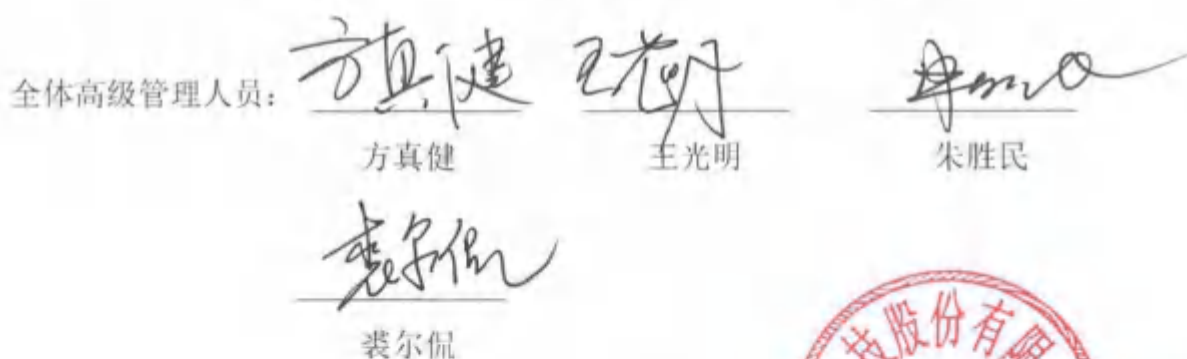 全体高级管理人员： 方真健 王光明
方真健 王光明 朱胜民
裘尔侃
裘尔侃
技股份有限